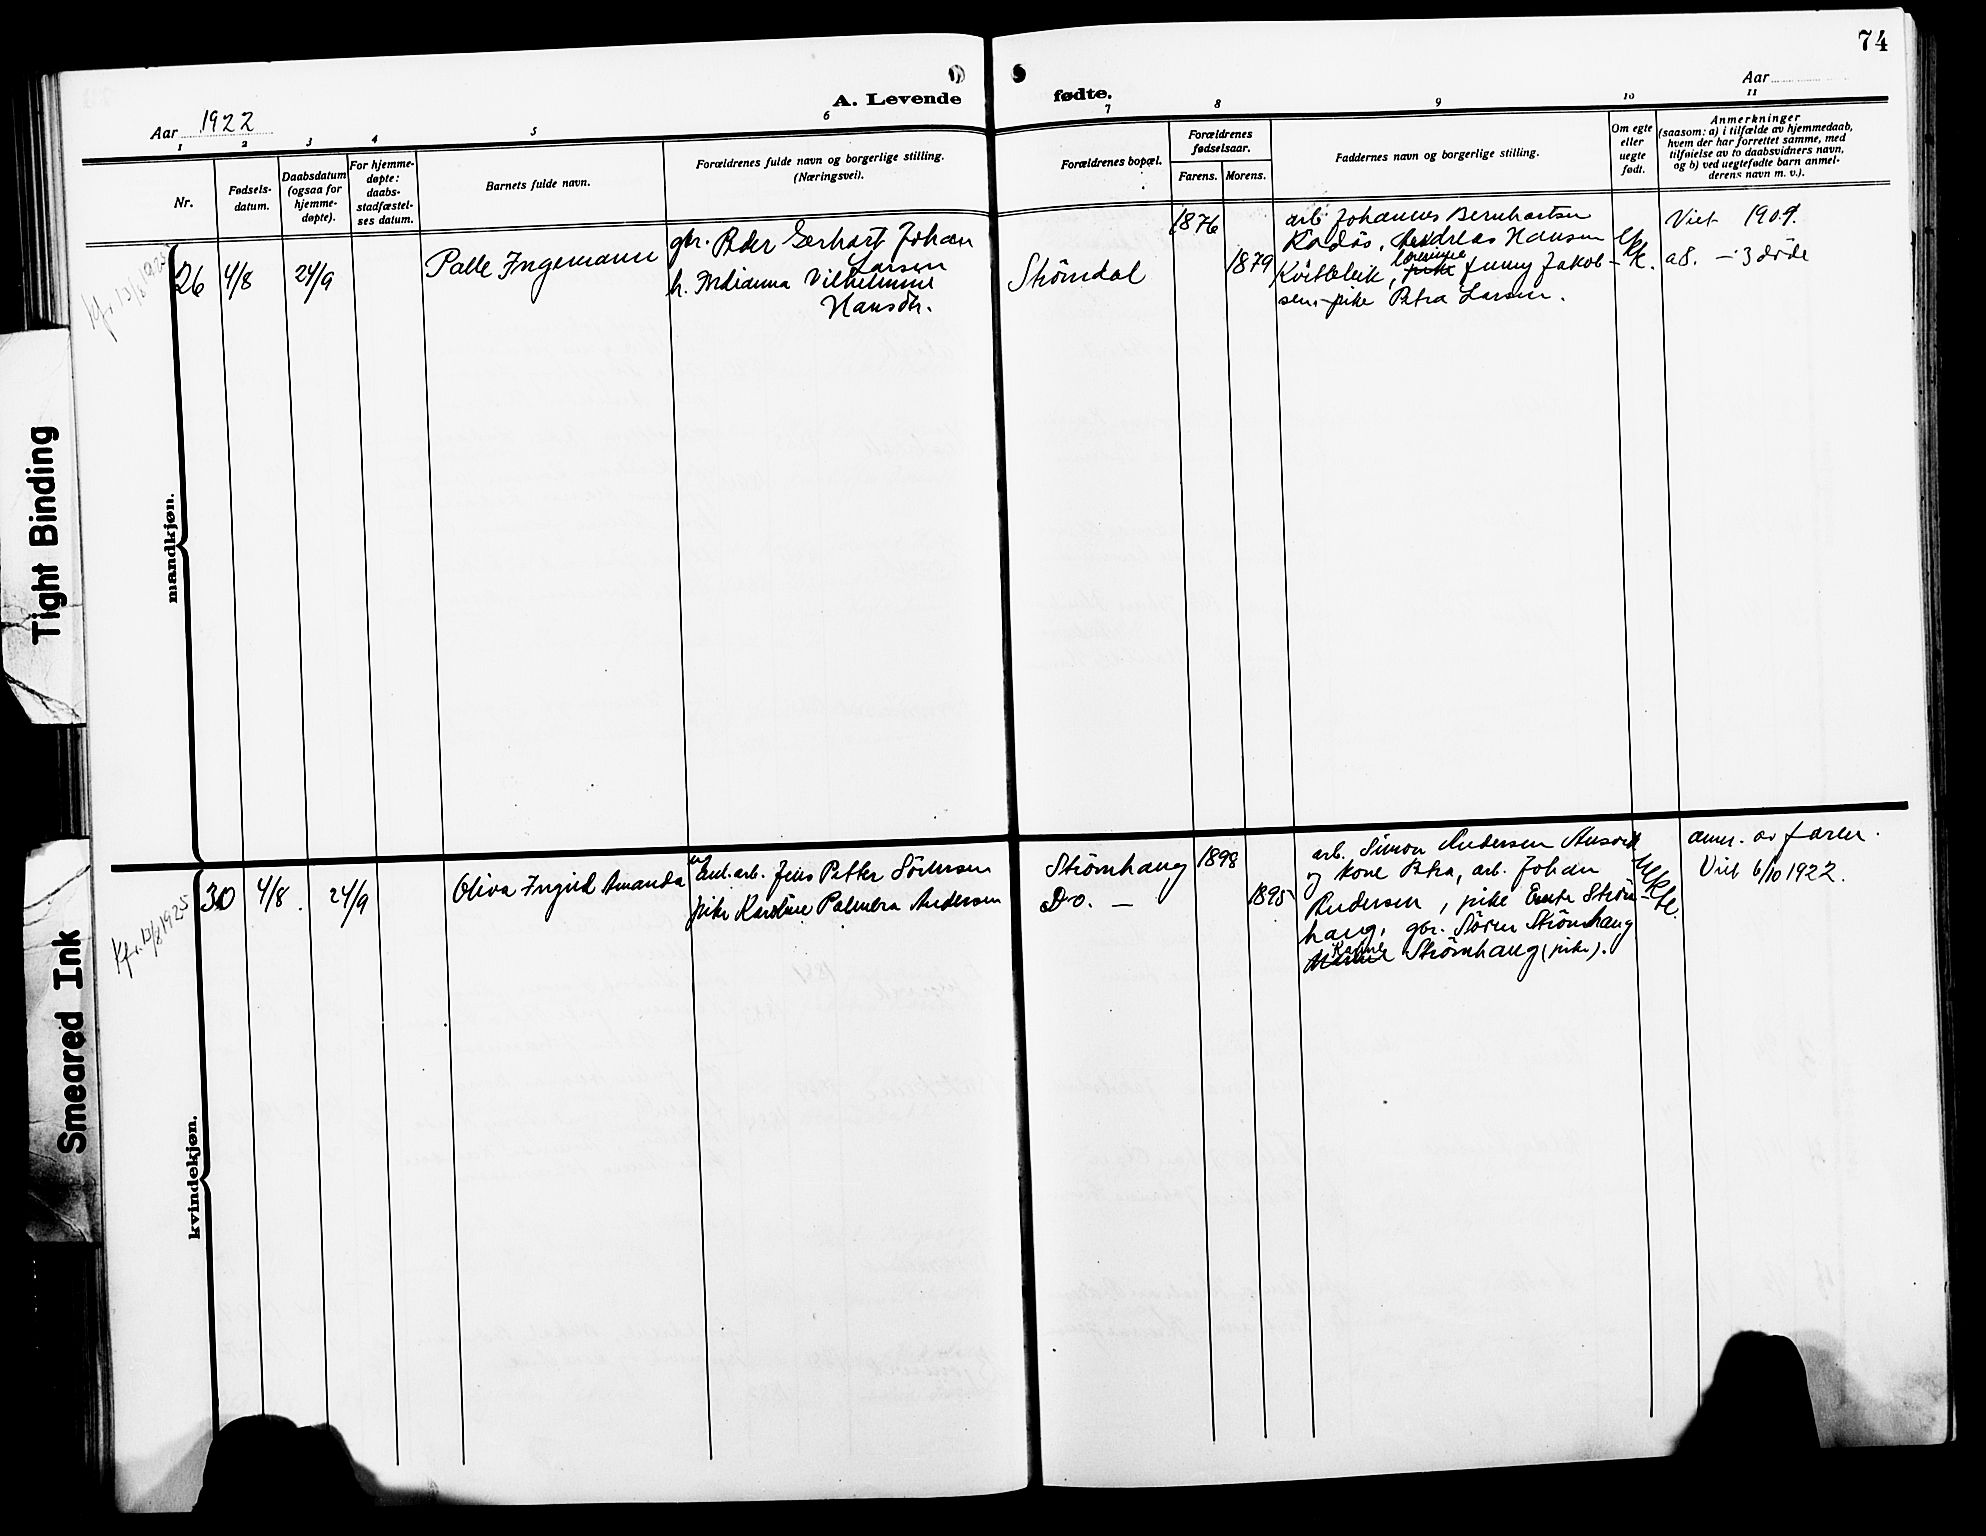 74
A. Levende fødte.
Aar 1922
Aar
1 2 3 4 5 6 7 8 9 10 11
Nr.
Fødsels-
datum.
Daabsdatum
(ogsaa for
hjemme-
døpte).
For hjemme-
døpte:
daabs-
stadfæstel-
ses datum.
Barnets fulde navn.
Forældrenes fulde navn og borgerlige stilling.
(Næringsvei).
Forældrenes bopæl.
Forældrenes
fødselsaar.
Farens. Morens.
Faddernes navn og borgerlige stilling.
Om egte
eller
uegte
født.
Anmerkninger
(saasom: a) i tilfælde av hjemmedaab,
hvem der har forrettet samme, med
tilføielse av to daabsvidners navn,
og b) ved uegtefødte barn anmel-
derens navn m. v.).
mandkjøn.
26
4/8
24/9
Palle Ingemann
gbr. Peder Gerhart Johan
Larsen
h. Indianna Vilhelmine
Hansdtr.
Strømdal
1876
1879
arb. Johannes Bernhartsen
Andreas Hansen
Kvitblik, Jenny Jakob-
sen, pike Petra Larsen.
Viet 1909.
a8. – 3 døde
kvindekjøn.
Kf. 13/8 1925
30
4/8
24/9
Oliva Ingrid Amanda
arb. Jens Petter Sørensen
pike Karoline Palmera Andersen
Strømhaug
Do. —
1898
1895
arb. Simon Andersen Ausvik
og kone Petra, arb. Johan
Andersen, pike Strøm-
haug, gbr. Søren Strømhaug
Strømhaug (pike).
Uekte.
anm. av faren.
Viet 6/10 1922.
Tight Binding
Smeared Ink